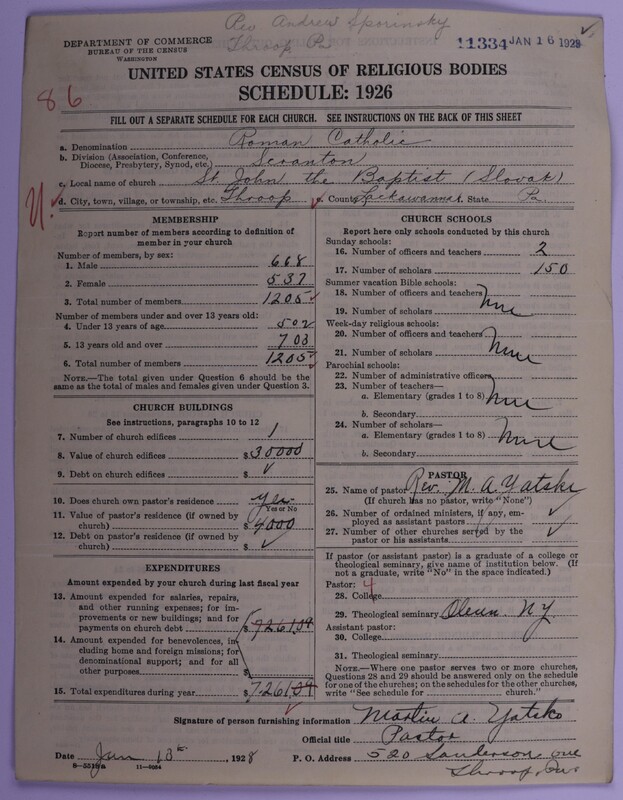 Rev Andrew Sporinsky
Throop Pa
DEPARTMENT OF COMMERCE
BUREAU OF THE CENSUS
WASHINGTON
11334 JAN 16 1929
UNITED STATES CENSUS OF RELIGIOUS BODIES
SCHEDULE: 1926
86
FILL OUT A SEPARATE SCHEDULE FOR EACH CHURCH. SEE INSTRUCTIONS ON THE BACK OF THIS SHEET
a. Denomination Roman Catholic
b. Division (Association, Conference, Diocese, Presbytery, Synod, etc.) Scranton
c. Local name of church St John the Baptist (Slovak)
d. City, town, village, or township, etc. Throop e. County Lackawanna f. State Pa.
MEMBERSHIP
Report number of members according to definition of
member in your church
Number of members, by sex:
1. Male 668
2. Female 537
3. Total number of members 1205
Number of members under and over 13 years old:
4. Under 13 years of age 502
5. 13 years old and over 703
6. Total number of members 1205
NOTE.—The total given under Question 6 should be the
same as the total of males and females given under Question 3.
CHURCH BUILDINGS
See instructions, paragraphs 10 to 12
7. Number of church edifices 1
8. Value of church edifices $30000
9. Debt on church edifices $
10. Does church own pastor's residence yes
Yes or No
11. Value of pastor's residence (if owned by
church) $4000
12. Debt on pastor's residence (if owned by
church) $
EXPENDITURES
Amount expended by your church during last fiscal year
13. Amount expended for salaries, repairs,
and other running expenses; for im-
provements or new buildings; and for
payments on church debt $7261,04
14. Amount expended for benevolences, in-
cluding home and foreign missions; for
denominational support; and for all
other purposes $
15. Total expenditures during year $7,261,04
CHURCH SCHOOLS
Report here only schools conducted by this church
Sunday schools:
16. Number of officers and teachers 2
17. Number of scholars 150
Summer vacation Bible schools:
18. Number of officers and teachers
19. Number of scholars None
Week-day religious schools:
20. Number of officers and teachers
21. Number of scholars None
Parochial schools:
22. Number of administrative officers
23. Number of teachers—
a. Elementary (grades 1 to 8) None
b. Secondary
24. Number of scholars—
a. Elementary (grades 1 to 8) None
b. Secondary
PASTOR
25. Name of pastor Rev. M. A. Yatsko
(If church has no pastor, write "None")
26. Number of ordained ministers, if any, em-
ployed as assistant pastors
27. Number of other churches served by the
pastor or his assistants
If pastor (or assistant pastor) is a graduate of a college or
theological seminary, give name of institution below. (If
not a graduate, write "No" in the space indicated.)
Pastor: 4
28. College
29. Theological seminary Olean NY
Assistant pastor:
30. College
31. Theological seminary
NOTE.—Where one pastor serves two or more churches,
Questions 28 and 29 should be answered only on the schedule
for one of the churches; on the schedules for the other churches,
write "See schedule for church."
Signature of person furnishing information Martin A. Yatsko
Official title Pastor
Date Jan 13th, 1928 P. O. Address 520 Sanderson ave
Throop, Pa
8—5519a 11—9034